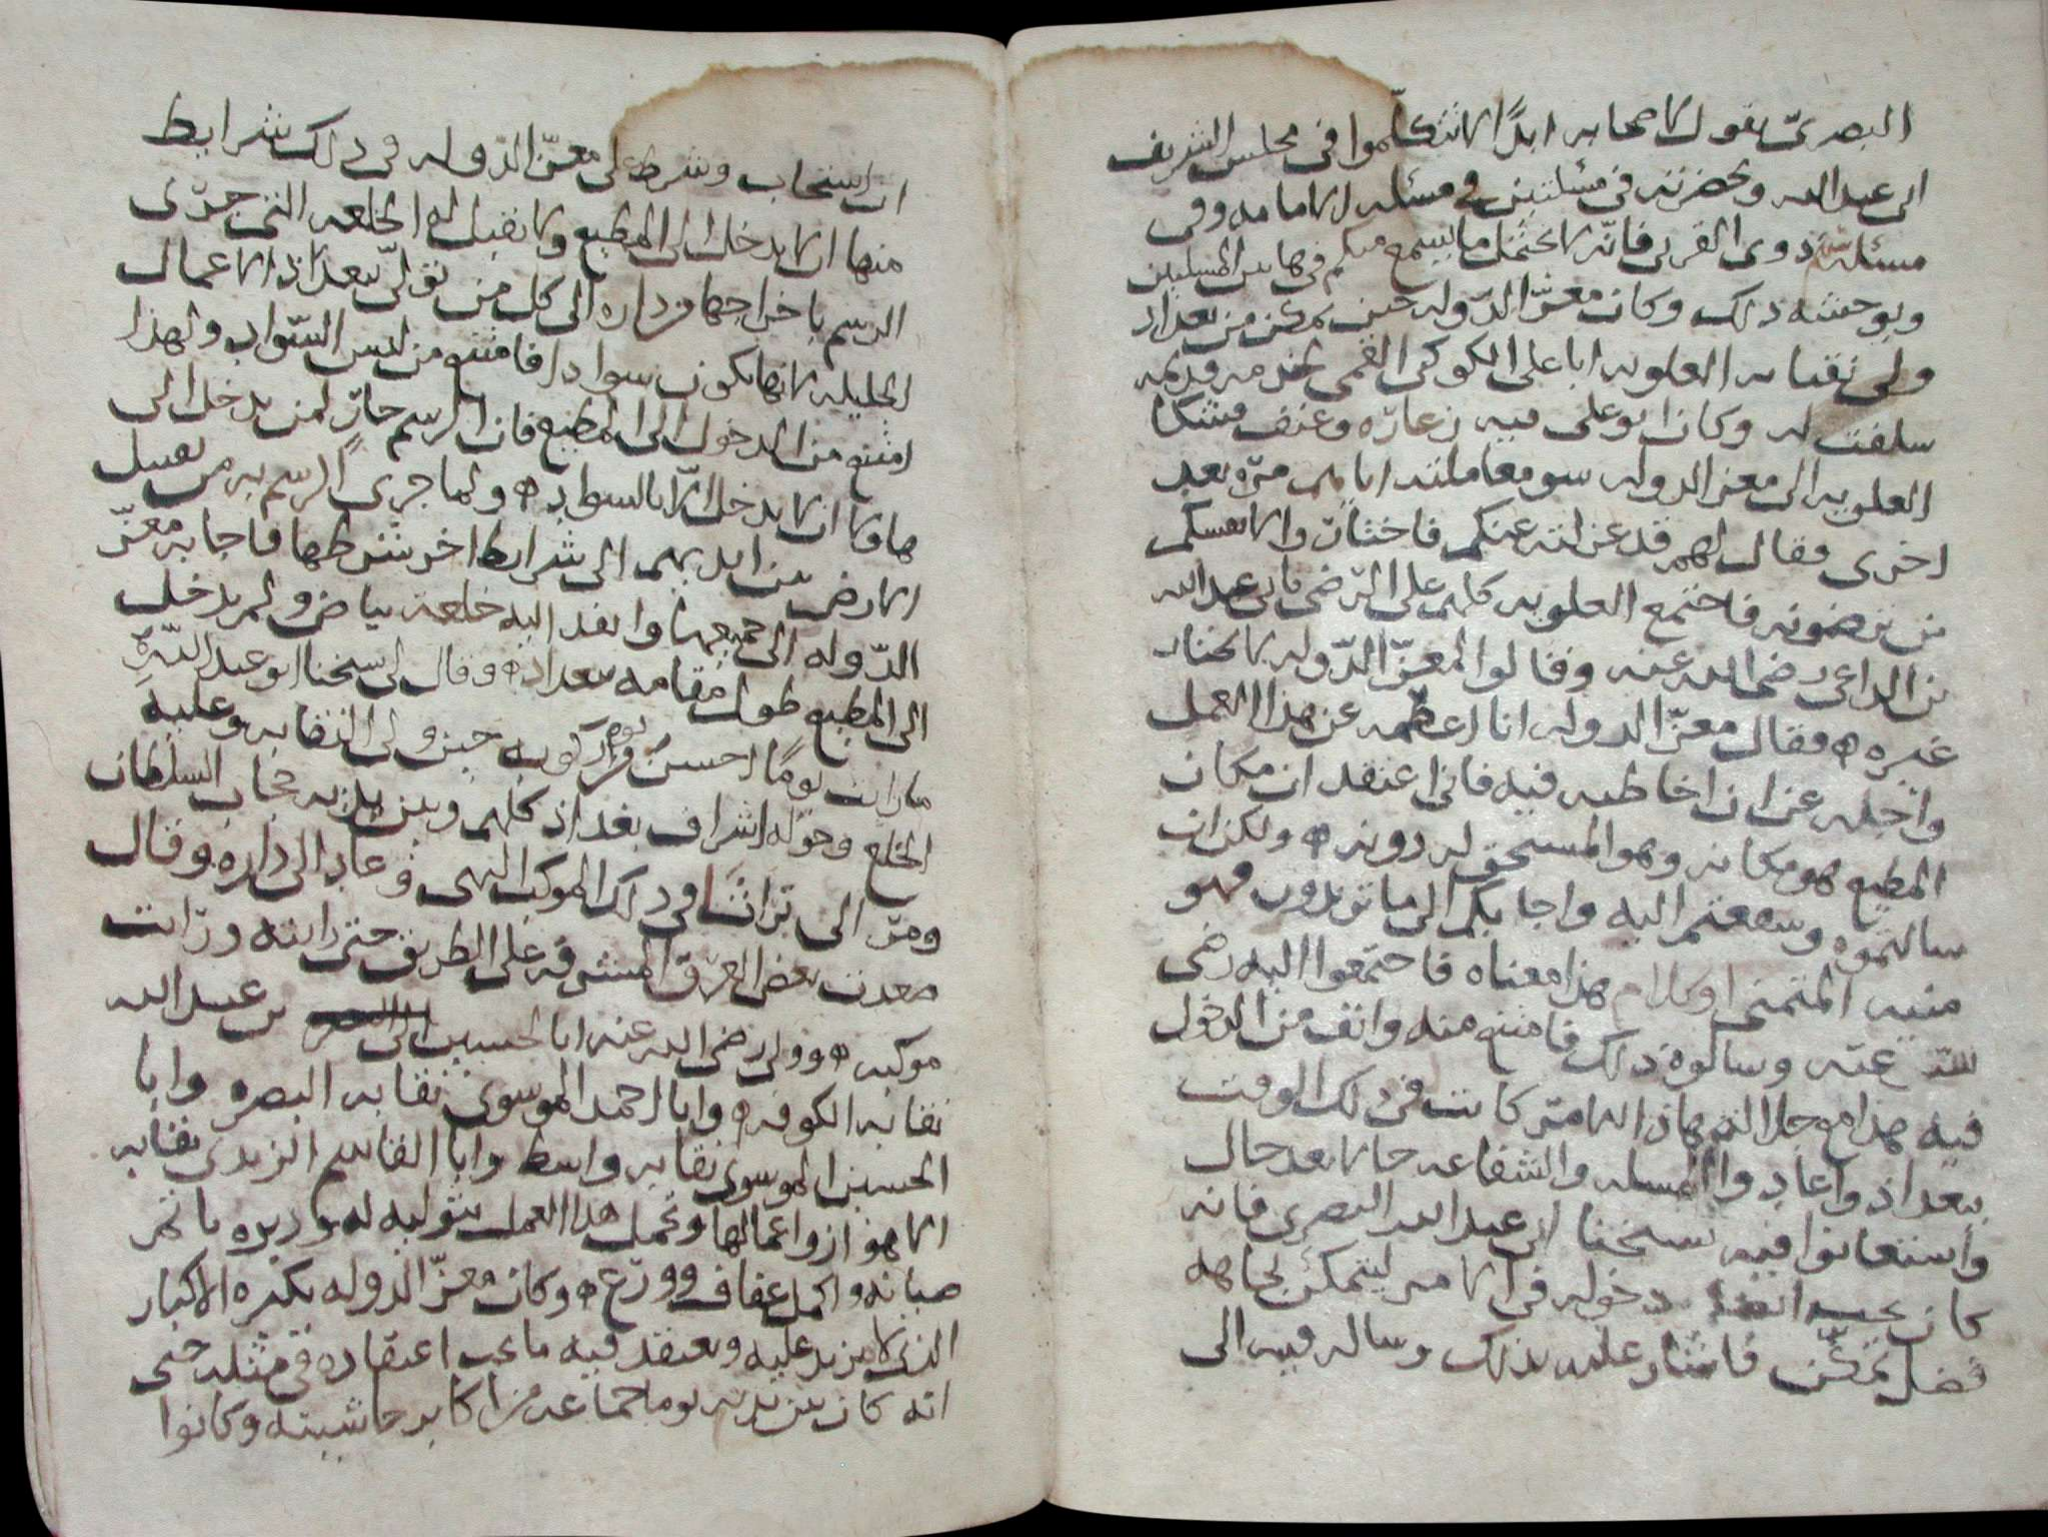 البصري يقول لاصحابه ابدًا لا تتكلّموا في مجلس الشريف
ابي عبد الله وبحضرته في مسئلتين في مسئله الامامه وفي
مسئله ذوي القربى فانه لا يحتمل ما يسمع منكم فيهما بين المسلمين
ويوحشه ذلك وكان معز الدوله حين تمكن من بغداد
ولى نقابه العلويه ابا علي الكوكبي القمي لخدمه قديمه
سلفت له وكان ابو علي فيه زعارّه وعنف فشكا
العلويه الى معز الدوله سو معاملته اياهم مرّه بعد
اخرى فقال لهم قد عزلته عنكم فاختاروا لانفسكم
من ترضونه فاجتمع العلويه كلهم على الرّضى بابي عبد الله
بن الداعي رضي الله عنه وقالوا لمعزّ الدّوله لا نختار
غيره ه فقال معزّ الدوله انا اعظمه عن هذا العمل
واجله عن ان اخاطبه فيه فاني اعتقد ان مكان
المطيع هو مكانه وهو المستحق له دونه ه ولكن ان
سالتموه وشفعتم اليه واجابكم الى ما تريدون فهو
منيه المتمني او كلام هذا معناه فاجتمعوا اليه رضي
الله عنه وسالوه ذلك فامتنع منه وانف من الدخول
فيه هذا مع جلاله هذا الامر كانت في ذلك الوقت
ببغداد واعادوا المسله والشفاعه حالا بعد حال
واستعانوا فيه بشيخنا ابي عبد الله البصري فانه
كان يحب ايضا دخوله في الامر ليتمكن بجاهه
فضل تمكّن فاشار عليه بذلك وساله فيه الى
ان استجاب وشرط على معزّ الدّوله في ذلك شرايط
منها ان لا يدخل الى المطيع ولا يقبل له الخلعه التي جرى
الرسم باخراجها من داره الى كل من تولّى ببغداد الاعمال
الجليله لانها تكون سوادا فامتنع من لبس السّواد ولهذا
امتنع من الدخول الى المطيع فان الرسم جار لمن يدخل الى
هاولا ان لا يدخل الا بالسواد ه ولما جرى الرسم به من تقبيل
الارض بين ايديهم الى شرايط اخر شرطها فاجابه معزّ
الدّوله الى جميعها وانفذ اليه خلعه بياض ولم يدخل
الى المطيع طول مقامه ببغداد ه وقال لي شيخنا ابو عبد الله
ما رايت يومًا احسن من يوم ركوبه حين ولي النقابه وعليه
الخلع وحوله اشراف بغداد كلهم وبين يديه حجاب السلطان
ومرّ الى براثا في ذلك الموكب البهي وعاد الى داره وقال
صعدت بعض الغرف المشرفه على الطريق حتى رايته ورايت
موكبه ه وولى رضي الله عنه ابا الحسين بن عبد الله
نقابه الكوفه وابا احمد الموسوي نقابه البصره وابا
الحسين الموسوي نقابه واسط وابا القاسم الزيدي نقابه
الاهواز واعمالها وتحمل هذا العمل بتوليه له ودبره باتم
صيانه واكمل عفاف وورع ه وكان معزّ الدوله يكبره الاكبار
الذي لا مزيد عليه ويعتقد فيه ما يجب اعتقاده في مثله حتى
انه كان بين يديه يوما جماعه من اكابر حاشيته وكانوا